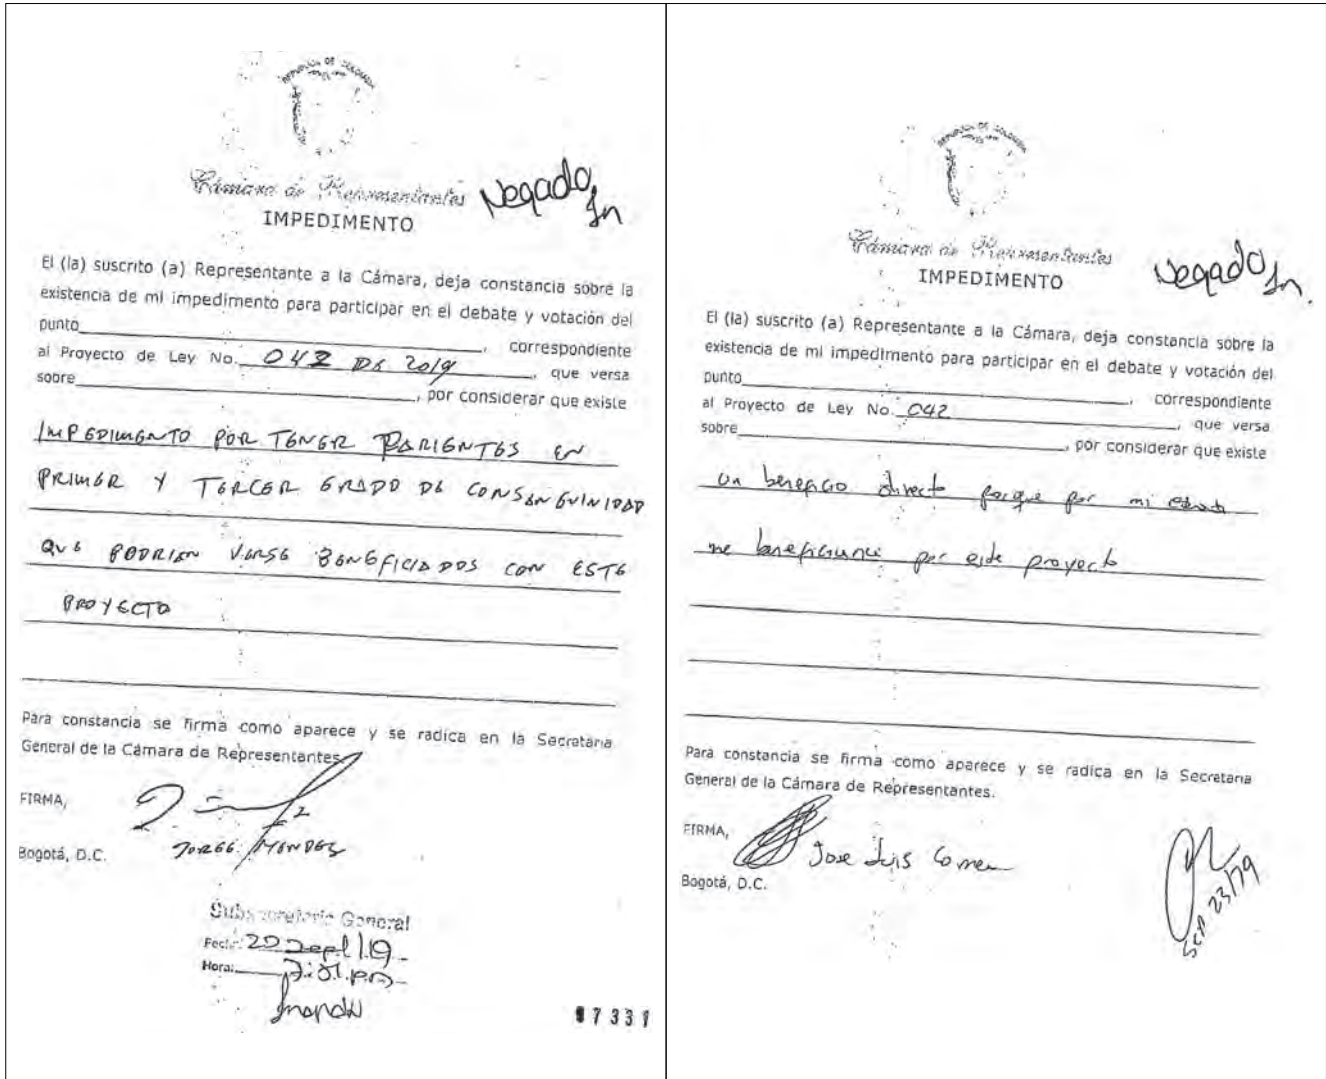 REPUBLICA DE COLOMBIA
Cámara de Representantes
Negado
IMPEDIMENTO
El (la) suscrito (a) Representante a la Cámara, deja constancia sobre la
existencia de mi impedimento para participar en el debate y votación del
punto , correspondiente
al Proyecto de Ley No. 042 DE 2019 , que versa
sobre , por considerar que existe
IMPEDIMENTO POR TENER PARIENTES EN
PRIMER Y TERCER GRADO DE CONSANGUINIDAD
QUE PODRIAN VERSE BENEFICIADOS CON ESTE
PROYECTO
Para constancia se firma como aparece y se radica en la Secretaria
General de la Cámara de Representantes.
FIRMA,
JORGE MENDEZ
Bogotá, D.C.
Subsecretaria General
Fecha: 20 Sept/19
Hora:
17331
REPUBLICA DE COLOMBIA
Cámara de Representantes
Negado
IMPEDIMENTO
El (la) suscrito (a) Representante a la Cámara, deja constancia sobre la
existencia de mi impedimento para participar en el debate y votación del
punto , correspondiente
al Proyecto de Ley No. 042 , que versa
sobre , por considerar que existe
un beneficio directo porque por mi
me por este proyecto
Para constancia se firma como aparece y se radica en la Secretaria
General de la Cámara de Representantes.
FIRMA,
Jose Luis Correa
Bogotá, D.C.
Sep 23/19